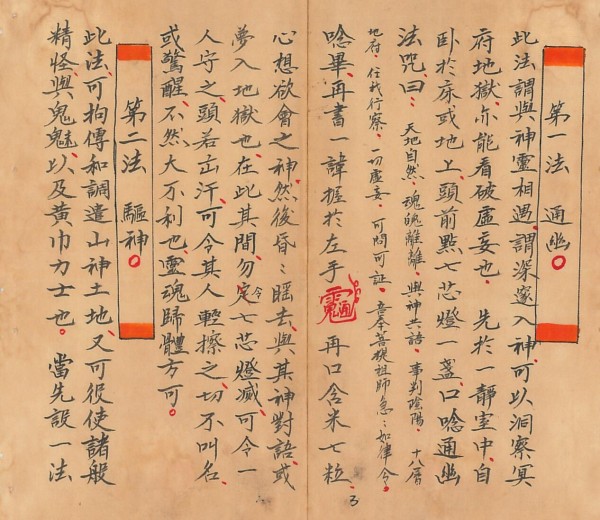 第一法 通幽。
此法謂與神靈相遇、謂深邃入神、可以洞察冥
府地獄、亦能看破虛妄也、先於一靜室中、自
卧於床或地上、頭前點七芯燈一盞、口唸通幽
法咒、曰、天地自然、魂魄離離、與神共語、事判陰陽、十八層
地府、任我行察、一切虛妄、可問可証、吾奉菩提祖師急：如律令。
唸畢、再書一諱握於左手 再口含米七粒、
心想欲會之神、然後昏：睡去、與其神對語、或
夢入地獄也、在此其間、勿定令七芯燈滅、可令一
人守之、頭若出汗、可令其人輕擦之、切不叫名、
或驚醒、不然大不利也、靈魂歸體方可。
第二法 驅神。
此法、可拘傳和調遣山神土地、又可役使諸般
精怪、與鬼魅、以及黃巾力士也。 當先設一法
3